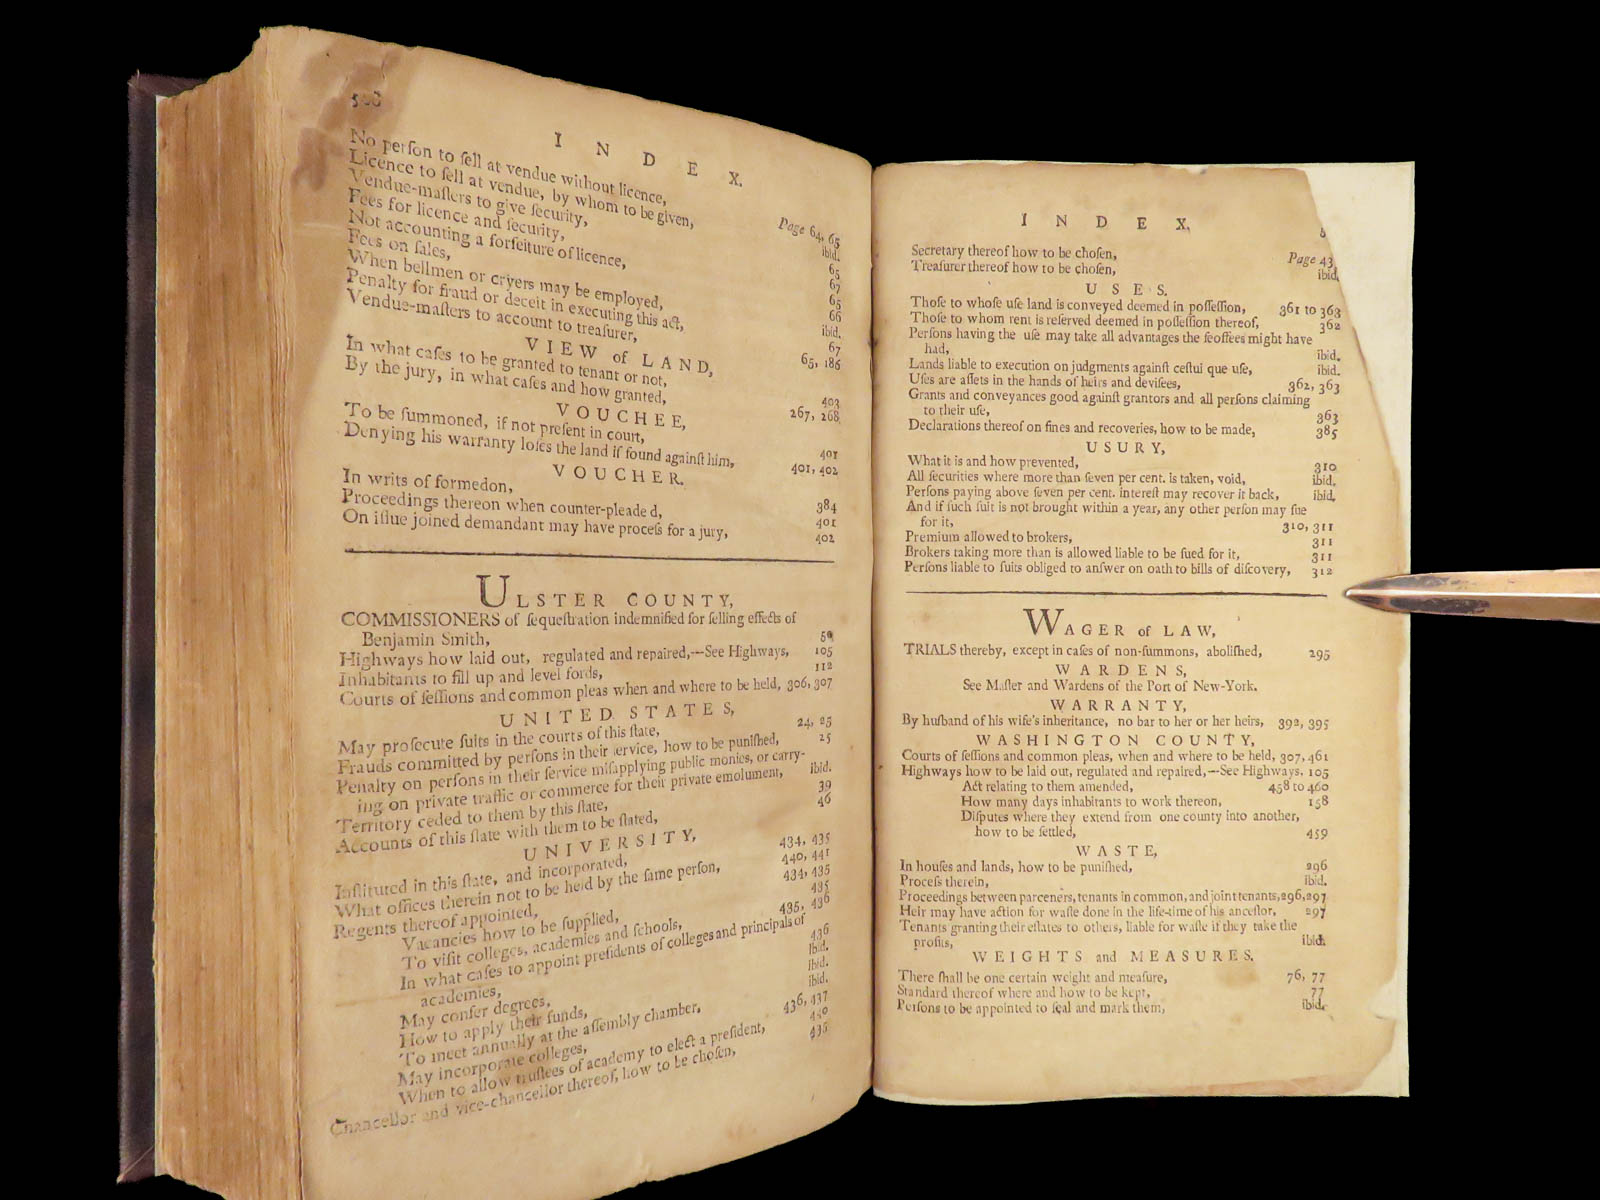 I N D E X.
No perſon to ſell at vendue without licence, Page 64, 65
Licence to ſell at vendue, by whom to be given, ibid.
Vendue-maſters to give ſecurity, 65
Fees for licence and ſecurity, 67
Not accounting a forfeiture of licence, 65
Fees on ſales, 66
When bellmen or cryers may be employed, ibid.
Penalty for fraud or deceit in executing this act, 67
Vendue-maſters to account to treaſurer, 65, 186
VIEW of LAND,
In what caſes to be granted to tenant or not, 403
By the jury, in what caſes and how granted, 267, 268
VOUCHEE,
To be ſummoned, if not preſent in court, 401
Denying his warranty loſes the land if found againſt him, 401, 402
VOUCHER.
In writs of formedon, 384
Proceedings thereon when counter-pleaded, 401
On iſſue joined demandant may have proceſs for a jury, 402
ULSTER COUNTY,
COMMISSIONERS of ſequeſtration indemnified for ſelling effects of
Benjamin Smith,
Highways how laid out, regulated and repaired,—See Highways, 105
Inhabitants to fill up and level fords, 112
Courts of ſeſſions and common pleas when and where to be held, 306, 307
UNITED STATES,
May proſecute ſuits in the courts of this ſtate, 24, 25
Frauds committed by perſons in their ſervice, how to be puniſhed, 25
Penalty on perſons in their ſervice miſapplying public monies, or carry-
ing on private traffic or commerce for their private emolument, ibid.
Territory ceded to them by this ſtate, 39
Accounts of this ſtate with them to be ſtated, 46
UNIVERSITY,
Inſtituted in this ſtate, and incorporated, 434, 435
What offices therein not to be held by the ſame perſon, 440, 441
Regents thereof appointed, 434, 435
Vacancies how to be ſupplied, 435
To viſit colleges, academies and ſchools, 435, 436
In what caſes to appoint preſidents of colleges and principals of
academies, 436
May confer degrees, ibid.
How to apply their funds, ibid.
To meet annually at the aſſembly chamber, ibid.
May incorporate colleges, 436, 437
When to allow truſtees of academy to elect a preſident, 440
Chancellor and vice-chancellor thereof, how to be choſen, 435
I N D E X.
Secretary thereof how to be choſen, Page 43
Treaſurer thereof how to be choſen, ibid.
USES.
Thoſe to whoſe uſe land is conveyed deemed in poſſeſſion, 361 to 363
Thoſe to whom rent is reſerved deemed in poſſeſſion thereof, 362
Perſons having the uſe may take all advantages the feoffees might have
had, ibid.
Lands liable to execution on judgments againſt ceſtui que uſe, ibid.
Uſes are aſſets in the hands of heirs and deviſees, 362, 363
Grants and conveyances good againſt grantors and all perſons claiming
to their uſe, 363
Declarations thereof on fines and recoveries, how to be made, 385
USURY,
What it is and how prevented, 310
All ſecurities where more than ſeven per cent. is taken, void, ibid.
Perſons paying above ſeven per cent. intereſt may recover it back, ibid.
And if ſuch ſuit is not brought within a year, any other perſon may ſue
for it, 310, 311
Premium allowed to brokers, 311
Brokers taking more than is allowed liable to be ſued for it, 311
Perſons liable to ſuits obliged to anſwer on oath to bills of diſcovery, 312
WAGER of LAW,
TRIALS thereby, except in caſes of non-ſummons, aboliſhed, 295
WARDENS,
See Maſter and Wardens of the Port of New-York.
WARRANTY,
By huſband of his wife's inheritance, no bar to her or her heirs, 392, 395
WASHINGTON COUNTY,
Courts of ſeſſions and common pleas, when and where to be held, 307, 461
Highways how to be laid out, regulated and repaired,—See Highways, 105
Act relating to them amended, 458 to 460
How many days inhabitants to work thereon, 158
Diſputes where they extend from one county into another,
how to be ſettled, 459
WASTE,
In houſes and lands, how to be puniſhed, 296
Proceſs therein, ibid.
Proceedings between parceners, tenants in common, and joint tenants, 296, 297
Heir may have action for waſte done in the life-time of his anceſtor, 297
Tenants granting their eſtates to others, liable for waſte if they take the
profits, ibid.
WEIGHTS and MEASURES.
There ſhall be one certain weight and meaſure, 76, 77
Standard thereof where and how to be kept, 77
Perſons to be appointed to ſeal and mark them, ibid.